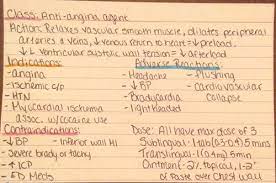 Class: Anti-angina agent
Action: Relaxes vascular smooth muscle, dilates peripheral
arteries & veins, ↓ venous return to heart = ↓ preload.
↓ L ventricular systolic wall tension = ↓ afterload
Indications: Adverse Reactions:
-angina - Headache - Flushing
-ischemic c/p - ↓ BP - Cardiovascular
- HTN - Bradycardia collapse
- Myocardial ischemia - lightheaded
assoc. w/ cocaine use
Contraindications: Dose: All have max dose of 3
- ↓BP - inferior wall MI Sublingual - 1 tab (0.3-0.4) 5 min
- Severe brady or tachy Translingual - 1 (0.4mg) 5 min
- ↑ ICP Ointment - 2% topical, 1-2"
- ED Meds of paste over chest wall